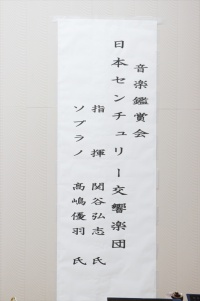 音楽鑑賞会
日本センチュリー交響楽団
指揮 関谷弘志 氏
ソプラノ 高嶋優羽 氏